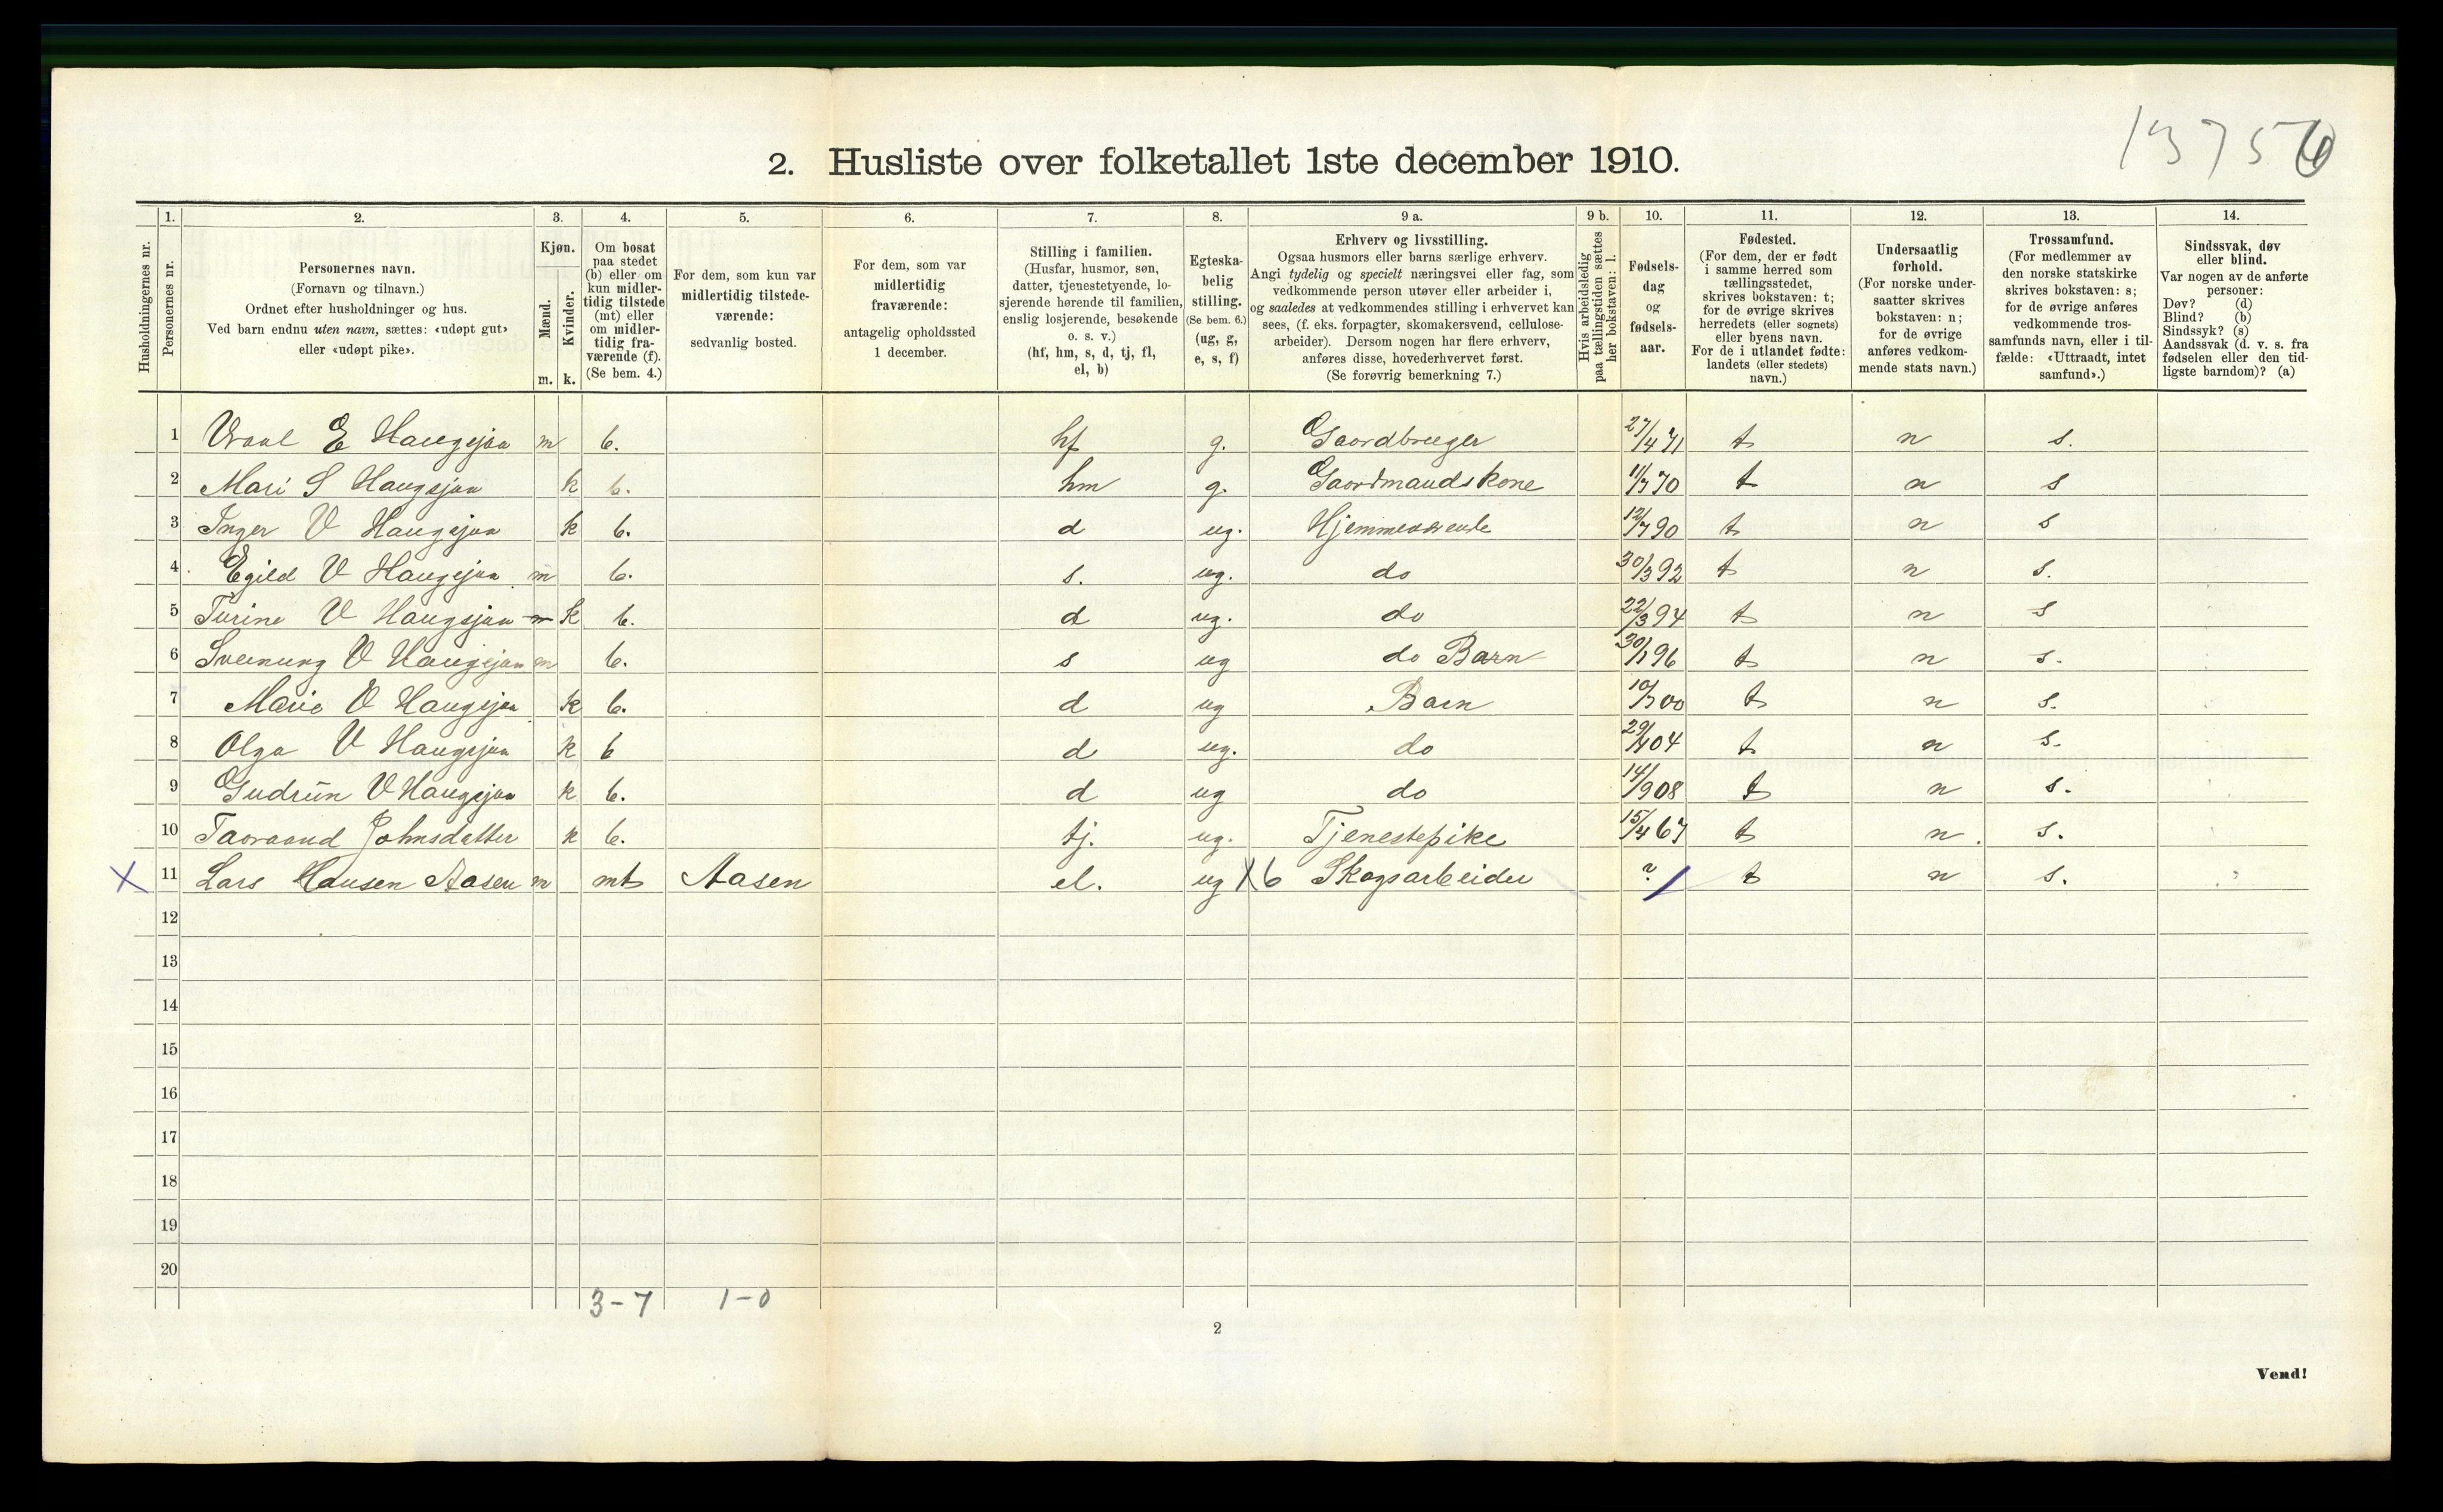 13756
2. Husliste over folketallet 1ste december 1910.
Husholdningernes nr.
1. Personernes nr.
2. Personernes navn. (Fornavn og tilnavn.) Ordnet efter husholdninger og hus. Ved barn endnu uten navn, sættes: «udøpt gut» eller «udøpt pike».
3. Kjøn. Mænd. m. Kvinder. k.
4. Om bosat paa stedet (b) eller om kun midlertidig tilstede (mt) eller om midlertidig fraværende (f). (Se bem. 4.)
5. For dem, som kun var midlertidig tilstedeværende: sedvanlig bosted.
6. For dem, som var midlertidig fraværende: antagelig opholdssted 1 december.
7. Stilling i familien. (Husfar, husmor, søn, datter, tjenestetyende, losjerende hørende til familien, enslig losjerende, besøkende o. s. v.) (hf, hm, s, d, tj, fl, el, b)
8. Egteskabelig stilling. (Se bem. 6.) (ug, g, e, s, f)
9 a. Erhverv og livsstilling. Ogsaa husmors eller barns særlige erhverv. Angi tydelig og specielt næringsvei eller fag, som vedkommende person utøver eller arbeider i, og saaledes at vedkommendes stilling i erhvervet kan sees, (f. eks. forpagter, skomakersvend, cellulosearbeider). Dersom nogen har flere erhverv, anføres disse, hovederhvervet først. (Se forøvrig bemerkning 7.)
9 b. Hvis arbeidsledig paa tællingstiden sættes her bokstaven: l.
10. Fødselsdag og fødselsaar.
11. Fødested. (For dem, der er født i samme herred som tællingsstedet, skrives bokstaven: t; for de øvrige skrives herredets (eller sognets) eller byens navn. For de i utlandet fødte: landets (eller stedets) navn.)
12. Undersaatlig forhold. (For norske undersaatter skrives bokstaven: n; for de øvrige anføres vedkommende stats navn.)
13. Trossamfund. (For medlemmer av den norske statskirke skrives bokstaven: s; for de øvrige anføres vedkommende trossamfunds navn, eller i tilfælde: «Uttraadt, intet samfund».)
14. Sindssvak, døv eller blind. Var nogen av de anførte personer: Døv? (d) Blind? (b) Sindssyk? (s) Aandssvak (d. v. s. fra fødselen eller den tidligste barndom)? (a)
1 Vraal E Haugsjaa m b. hf g. Gaardbruger 27/4 71 t n s.
2 Mari S Haugsjaa k b. hm g. Gaardmandskone 11/7 70 t n s
3 Inger V Haugsjaa k b. d ug. Hjemmeværende 12/7 90 t n s
4 Egild V Haugsjaa m b. s. ug. do 30/3 92 t n s.
5 Turine V Haugsjaa m k b. d ug. do 22/3 94 t n s
6 Sveinung V Haugsjaa m b. s ug do Barn 30/1 96 t n s.
7 Marie V Haugsjaa k b. d ug Barn 10/3 00 t n s.
8 Olga V Haugsjaa k b d ug. do 29/4 04 t n s.
9 Gudrun V Haugsjaa k b. d ug do 14/9 08 t n s.
10 Taaraand Johnsdatter k b. tj. ug. Tjenestepike 15/4 67 t n. s.
X 11 Lars Hansen Aasen m mt Aasen el. ug X6 Skogsarbeider ? t n s.
12
13
14
15
16
17
18
19
20
3-7 1-0
2
Vend!